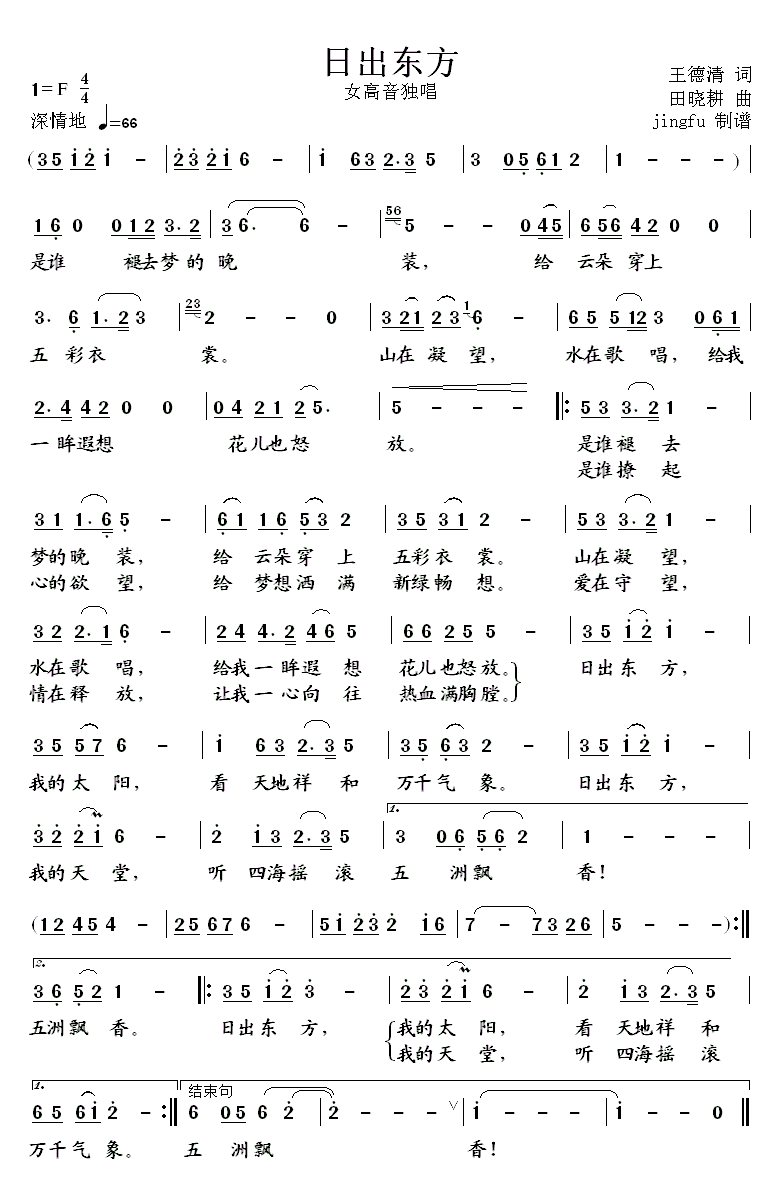 日出东方
女高音独唱
1=F 4/4
王德清 词
田晓耕 曲
深情地 ♩=66
jingfu 制谱
(35 i2 i - | 23 2i 6 - | i 63 2·3 5 | 3 05 61 2 | 1 - - - ) |
16 0 012 3·2 | 3 6· 6 - | 56 5 - - 045 | 656 42 0 0 |
是谁 褪去梦的晚 装， 给 云朵 穿上
3· 6 1·2 3 | 23 2 - - 0 | 321 23 1 6 - | 65 512 3 061 |
五 彩衣 裳。 山在 凝 望， 水在歌 唱， 给我
2·4 42 0 0 | 04 21 25· | 5 - - - ‖: 53 3·2 1 - |
一眸遐想 花儿也怒 放。 是谁褪 去
是谁撩 起
31 1·6 5 - | 61 16 53 2 | 35 31 2 - | 53 3·2 2 - |
梦的晚 装， 给 云朵穿 上 五彩衣 裳。 山在凝 望，
心的欲 望， 给 梦想洒 满 新绿畅 想。 爱在守 望，
32 2·1 6 - | 24 4·2 46 5 | 66 25 5 - | 35 i2 i - |
水在歌 唱， 给我一眸遐 想 花儿也怒放。 日出东 方，
情在释 放， 让我一心向 往 热血满胸膛。
35 57 6 - | i 63 2·3 5 | 35 63 2 - | 35 i2 i - |
我的太 阳， 看 天地祥 和 万千气 象。 日出东 方，
1.
32 2i 6 - | 2 i3 2·3 5 | 3 06 56 2 | 1 - - - |
我的天 堂， 听 四海摇 滚 五 洲飘 香！
(12 45 4 - | 25 67 6 - | 5i 23 2 i6 | 7 - 73 26 | 5 - - - ) :‖
2.
36 52 1 - ‖: 35 i2 3 - | 23 2i 6 - | 2 i3 2·3 5 |
五洲飘 香。 日出东 方， 我的太 阳， 看 天地祥 和
我的天 堂， 听 四海摇 滚
1. 结束句
65 6i 2 - :‖ 6 05 6 2 | 2 - - ∨ | i - - - | i - - 0 ‖
万千气 象。 五 洲飘 香！